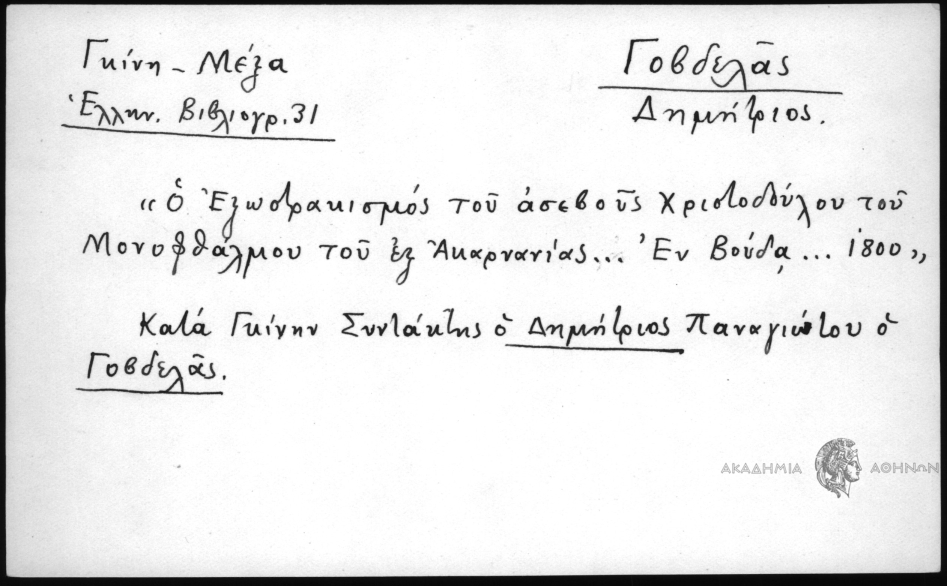 Γκίνη - Μέξα
Ἑλλην. Βιβλιογρ. 31
Γοβδελᾶς
Δημήτριος.
“ Ὁ Ἐξωστρακισμός τοῦ ἀσεβοῦς Χριστοδούλου τοῦ
Μονοφθάλμου τοῦ ἐξ Ἀκαρνανίας... Ἐν Βούδᾳ ... 1800 „
Κατά Γκίνην Συντάκτης ὁ Δημήτριος Παναγιώτου ὁ
Γοβδελᾶς.
ΑΚΑΔΗΜΙΑ ΑΘΗΝΩΝ